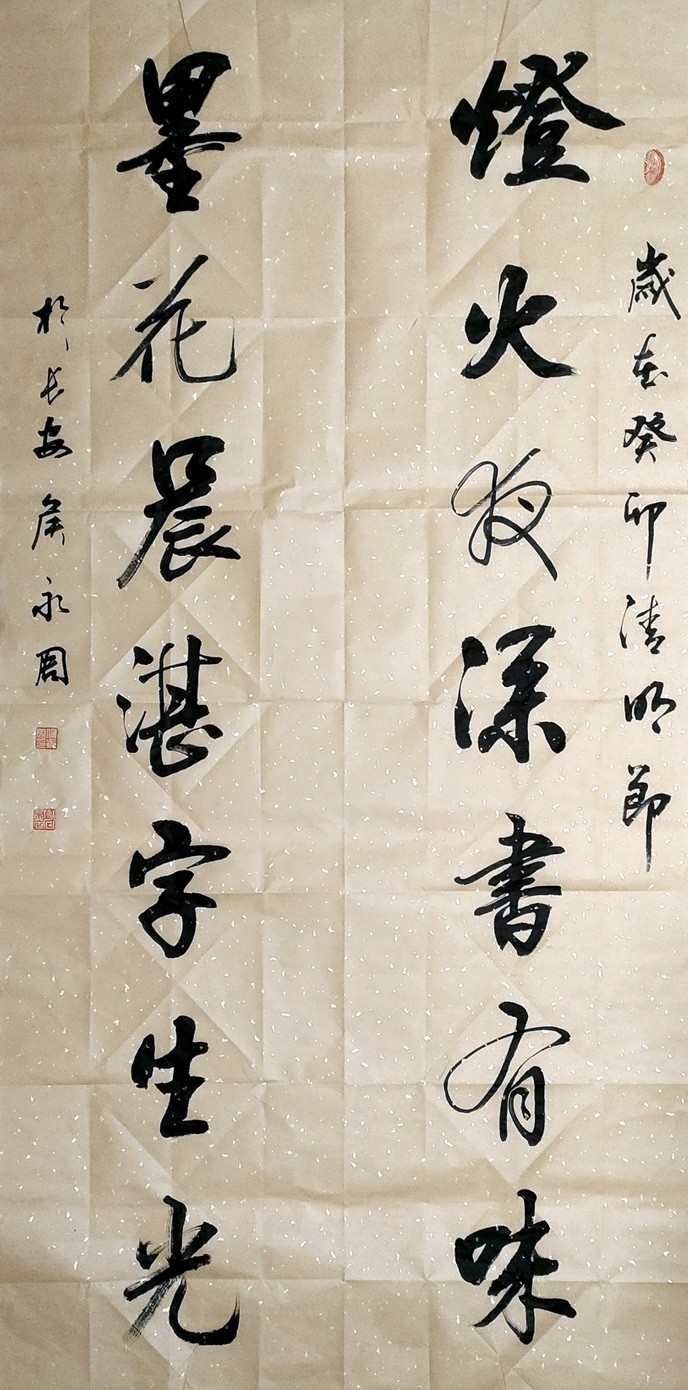 歲在癸卯清明節
燈火夜深書有味
墨花晨湛字生光
於長安侯永周